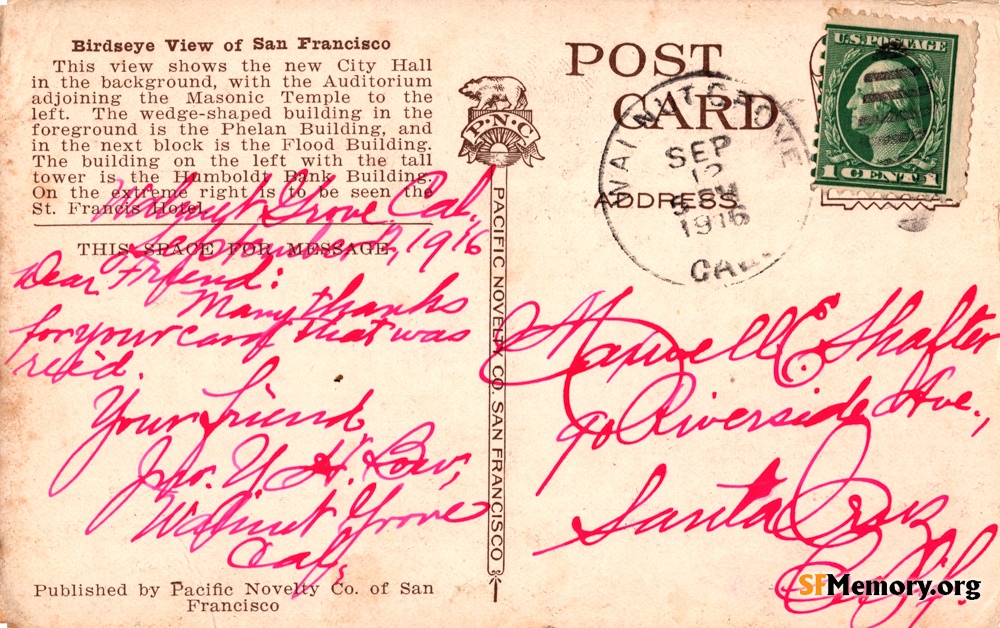 Birdseye View of San Francisco
This view shows the new City Hall
in the background, with the Auditorium
adjoining the Masonic Temple to the
left. The wedge-shaped building in the
foreground is the Phelan Building, and
in the next block is the Flood Building.
The building on the left with the tall
tower is the Humboldt Bank Building.
On the extreme right is to be seen the
St. Francis Hotel.
THIS SPACE FOR MESSAGE
Walnut Grove Cal.,
September 12, 1916
Dear Friend:
Many thanks
for your card that was
rec'd.
Your friend
Jno. Y. H. Low,
Walnut Grove
Cal.
Published by Pacific Novelty Co. of San
Francisco
P·N·C
PACIFIC NOVELTY CO. SAN FRANCISCO
POST
CARD
ADDRESS
WALNUT GROVE
SEP
12
PM
1916
CAL.
U.S. POSTAGE
1 CENT 1
Maxwell E. Shafter
90 Riverside Ave.,
Santa Cruz
Calif.
SFMemory.org